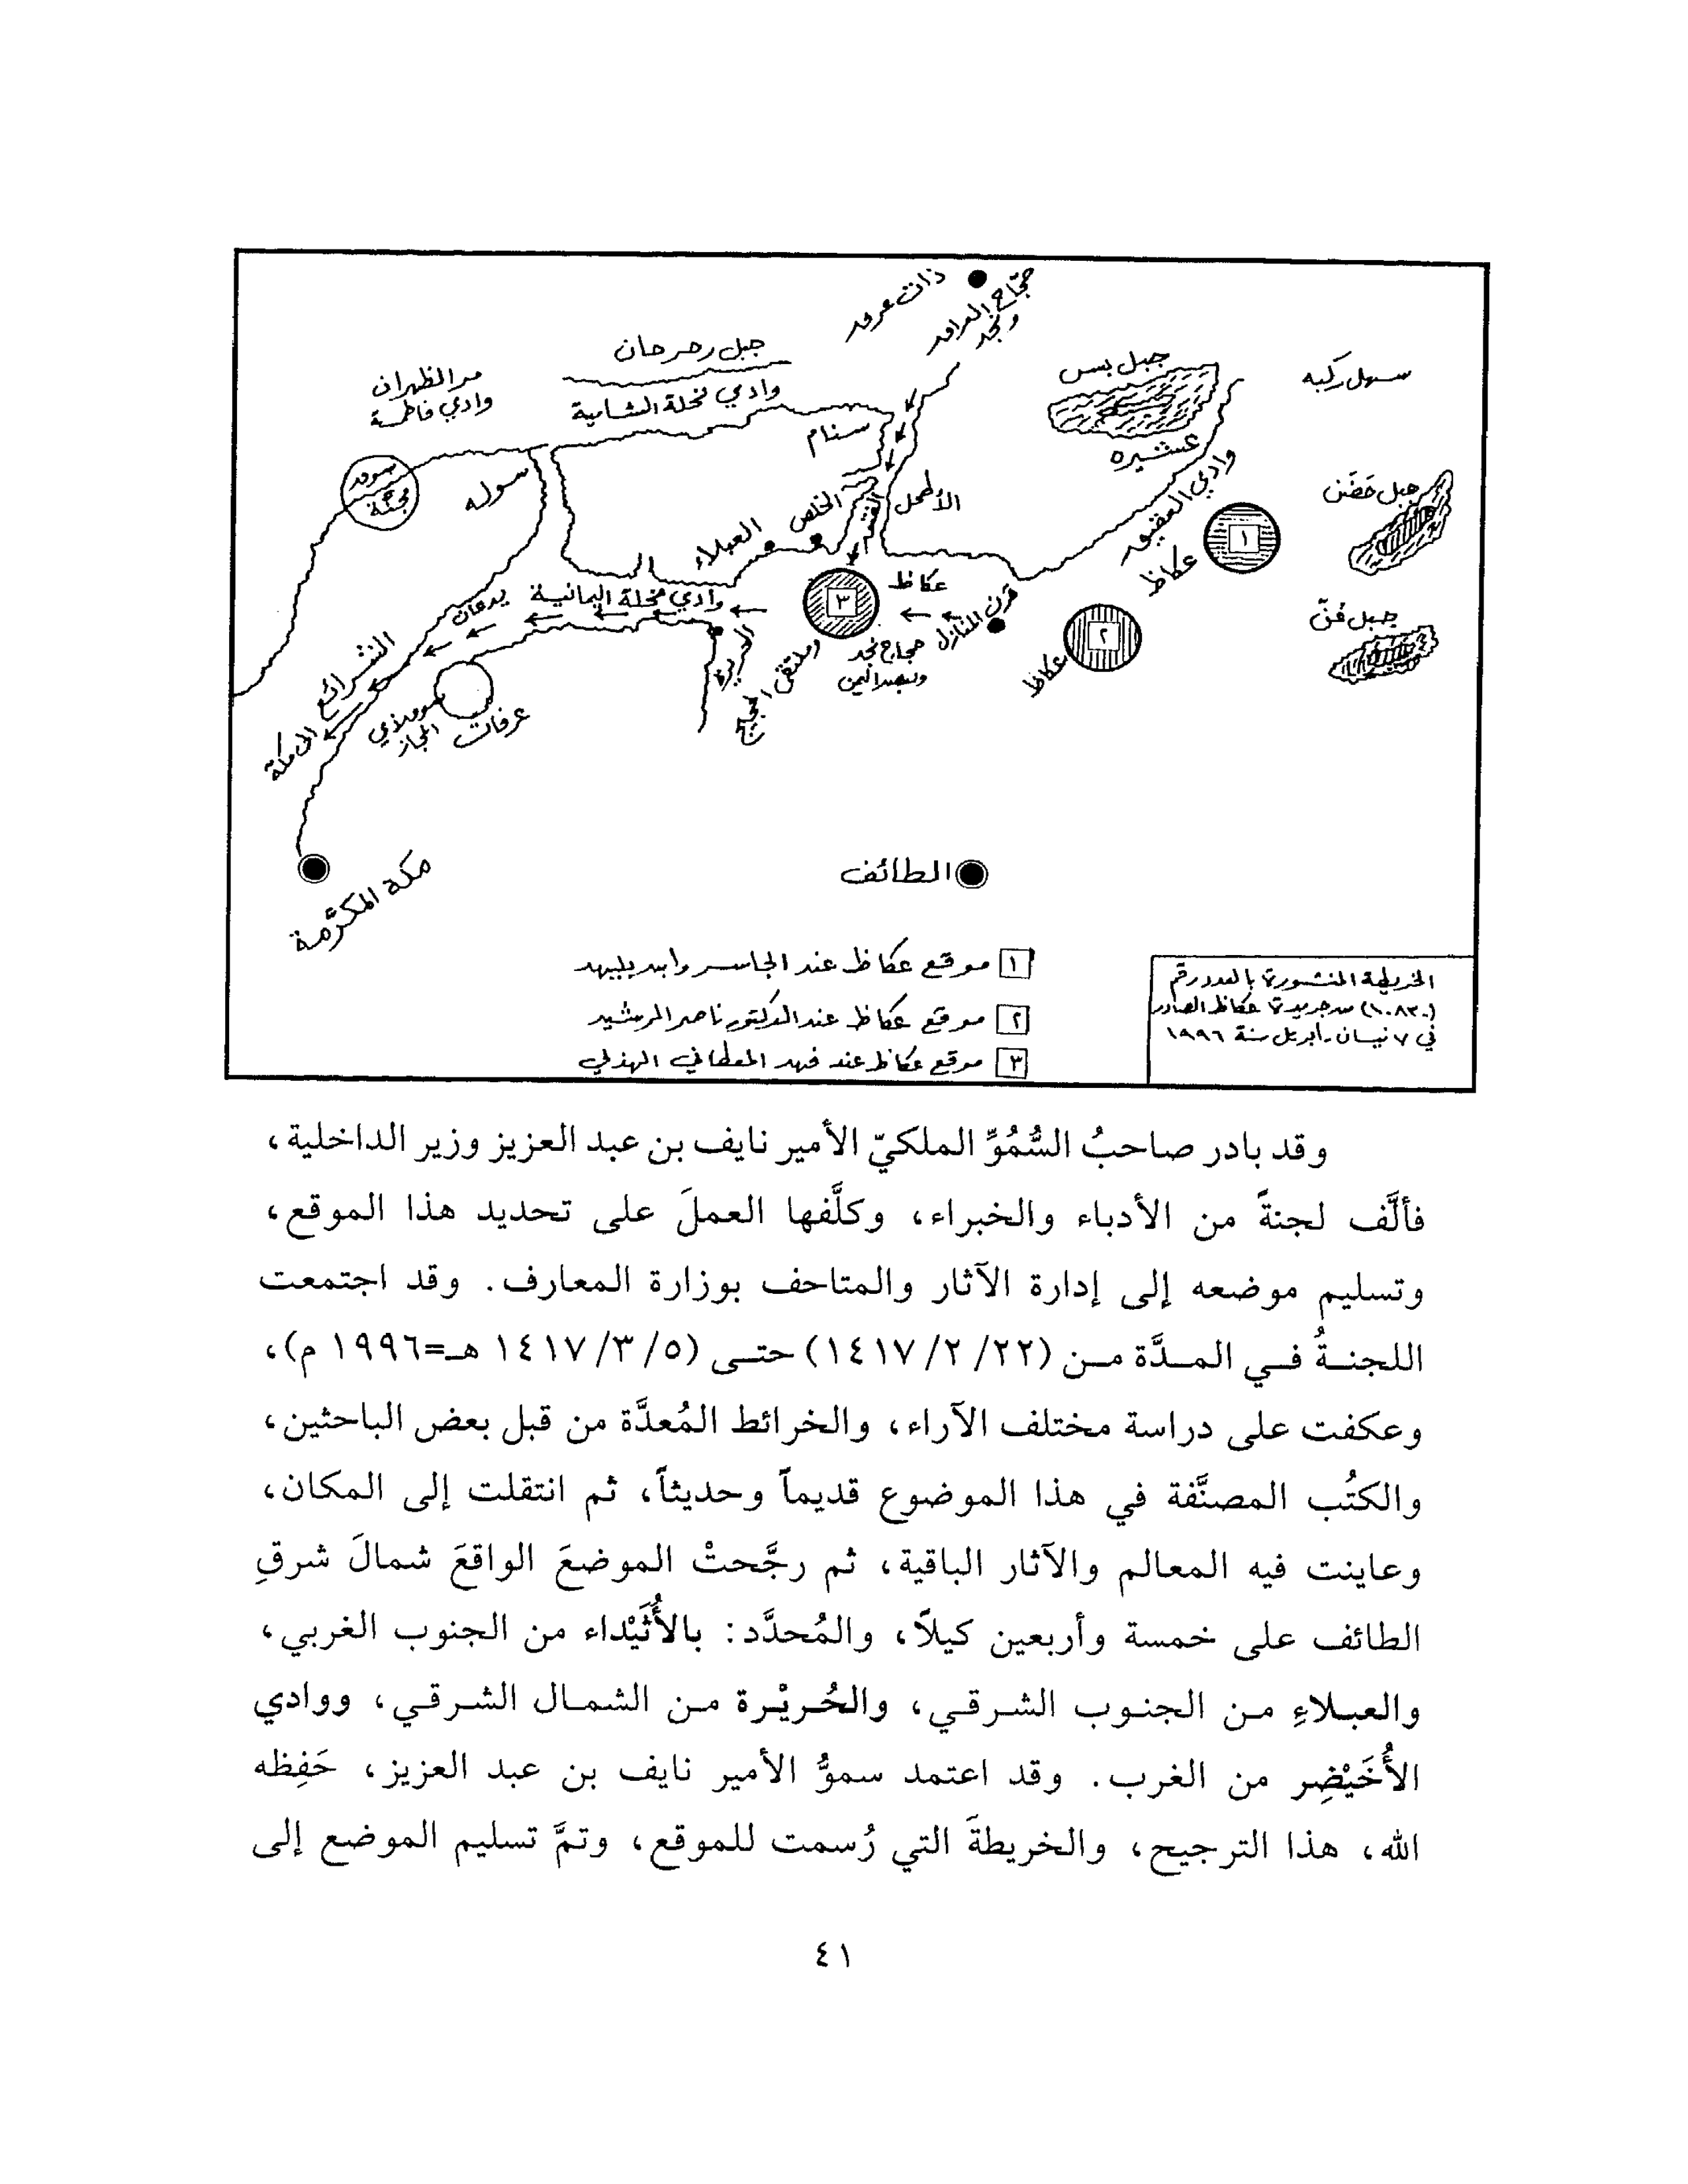 ذات عرق
حجّاج العراق
ونجد
جبل رحرحان
وادي نخلة الشامية
مر الظهران
وادي فاطمة
جبل بس
سهل ركبه
عشيره
سنام
وادي العقيق
جبل حَضَن
سوق
مجنّة
سوله
الأطحل
الخلص
العبلاء
١
عكاظ
عكاظ
٣
وادي نخلة اليمانية
يدعان
قرن المنازل
٢
عكاظ
جبل قنّ
حجاج نجد
وملتقى الحجيج
الشرائع
الى مكة
المجاز
عرفات
مكة المكرَّمة
الطائف
١ موقع عكاظ عند الجاسر وابن بليهد
٢ موقع عكاظ عند الدكتور ناصر الرشيد
٣ موقع عكاظ عند فهد المعطاني الهذلي
الخريطة المنشورة بالعدد رقم
(١٠٨٣٠) من جريدة عكاظ الصادر
في ٧ نيسان - أبريل سنة ١٩٩٦
وقد بادر صاحبُ السُّمُوِّ الملكيّ الأمير نايف بن عبد العزيز وزير الداخلية،
فألَّف لجنةً من الأدباء والخبراء، وكلَّفها العملَ على تحديد هذا الموقع،
وتسليم موضعه إلى إدارة الآثار والمتاحف بوزارة المعارف. وقد اجتمعت
اللجنةُ في المدَّة من (٢٢/ ٢/ ١٤١٧) حتى (٥/ ٣/ ١٤١٧ هـ=١٩٩٦ م)،
وعكفت على دراسة مختلف الآراء، والخرائط المُعدَّة من قبل بعض الباحثين،
والكتُب المصنَّفة في هذا الموضوع قديماً وحديثاً، ثم انتقلت إلى المكان،
وعاينت فيه المعالم والآثار الباقية، ثم رجَّحتْ الموضعَ الواقعَ شمالَ شرقِ
الطائف على خمسة وأربعين كيلاً، والمُحدَّد: بالأُثَيْداء من الجنوب الغربي،
والعبلاءِ من الجنوب الشرقي، والحُريْرة من الشمال الشرقي، ووادي
الأُخَيْضِر من الغرب. وقد اعتمد سموُّ الأمير نايف بن عبد العزيز، حَفِظه
الله، هذا الترجيح، والخريطةَ التي رُسمت للموقع، وتمَّ تسليم الموضع إلى
٤١